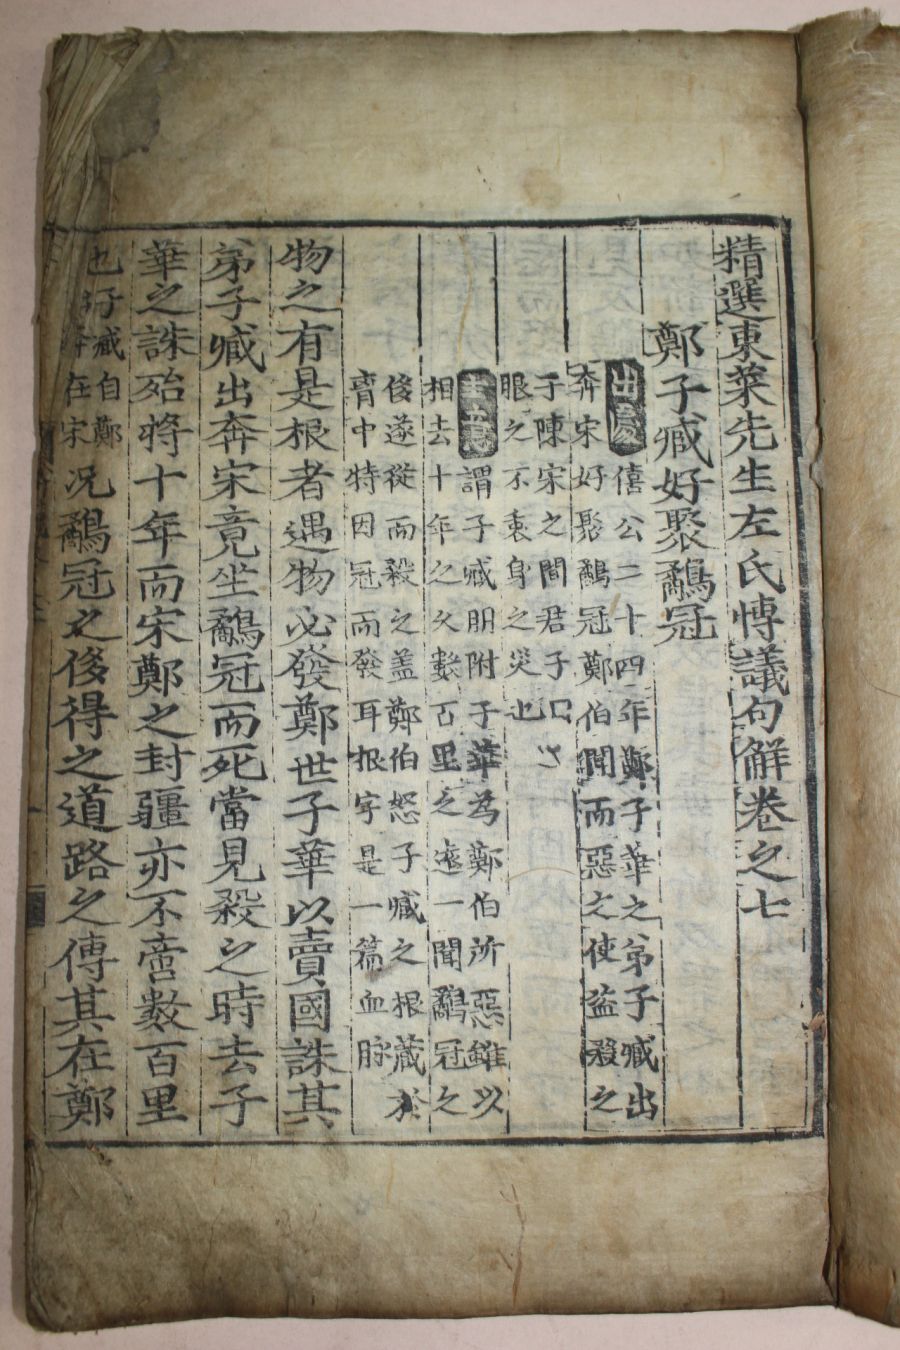 精選東萊先生左氏博議句解卷之七
鄭子臧好聚鷸冠
出處 僖公二十四年鄭子華之弟子臧出
奔宋好聚鷸冠鄭伯聞而惡之使盜殺之
于陳宋之間君子曰
服之不衷身之災也
主意 謂子臧朋附子華為鄭伯所惡雖以
相去十年之久數百里之遠一聞鷸冠之
後遂從而殺之盖鄭伯怒子臧之根藏於
胷中特因冠而發耳根字是一篇血脉
物之有是根者遇物必發鄭世子華以賣國誅其
弟子臧出奔宋竟坐鷸冠而死當見殺之時去子
華之誅殆將十年而宋鄭之封疆亦不啻數百里
也 子臧自鄭
奔在宋
况鷸冠之後得之道路之傳其在鄭